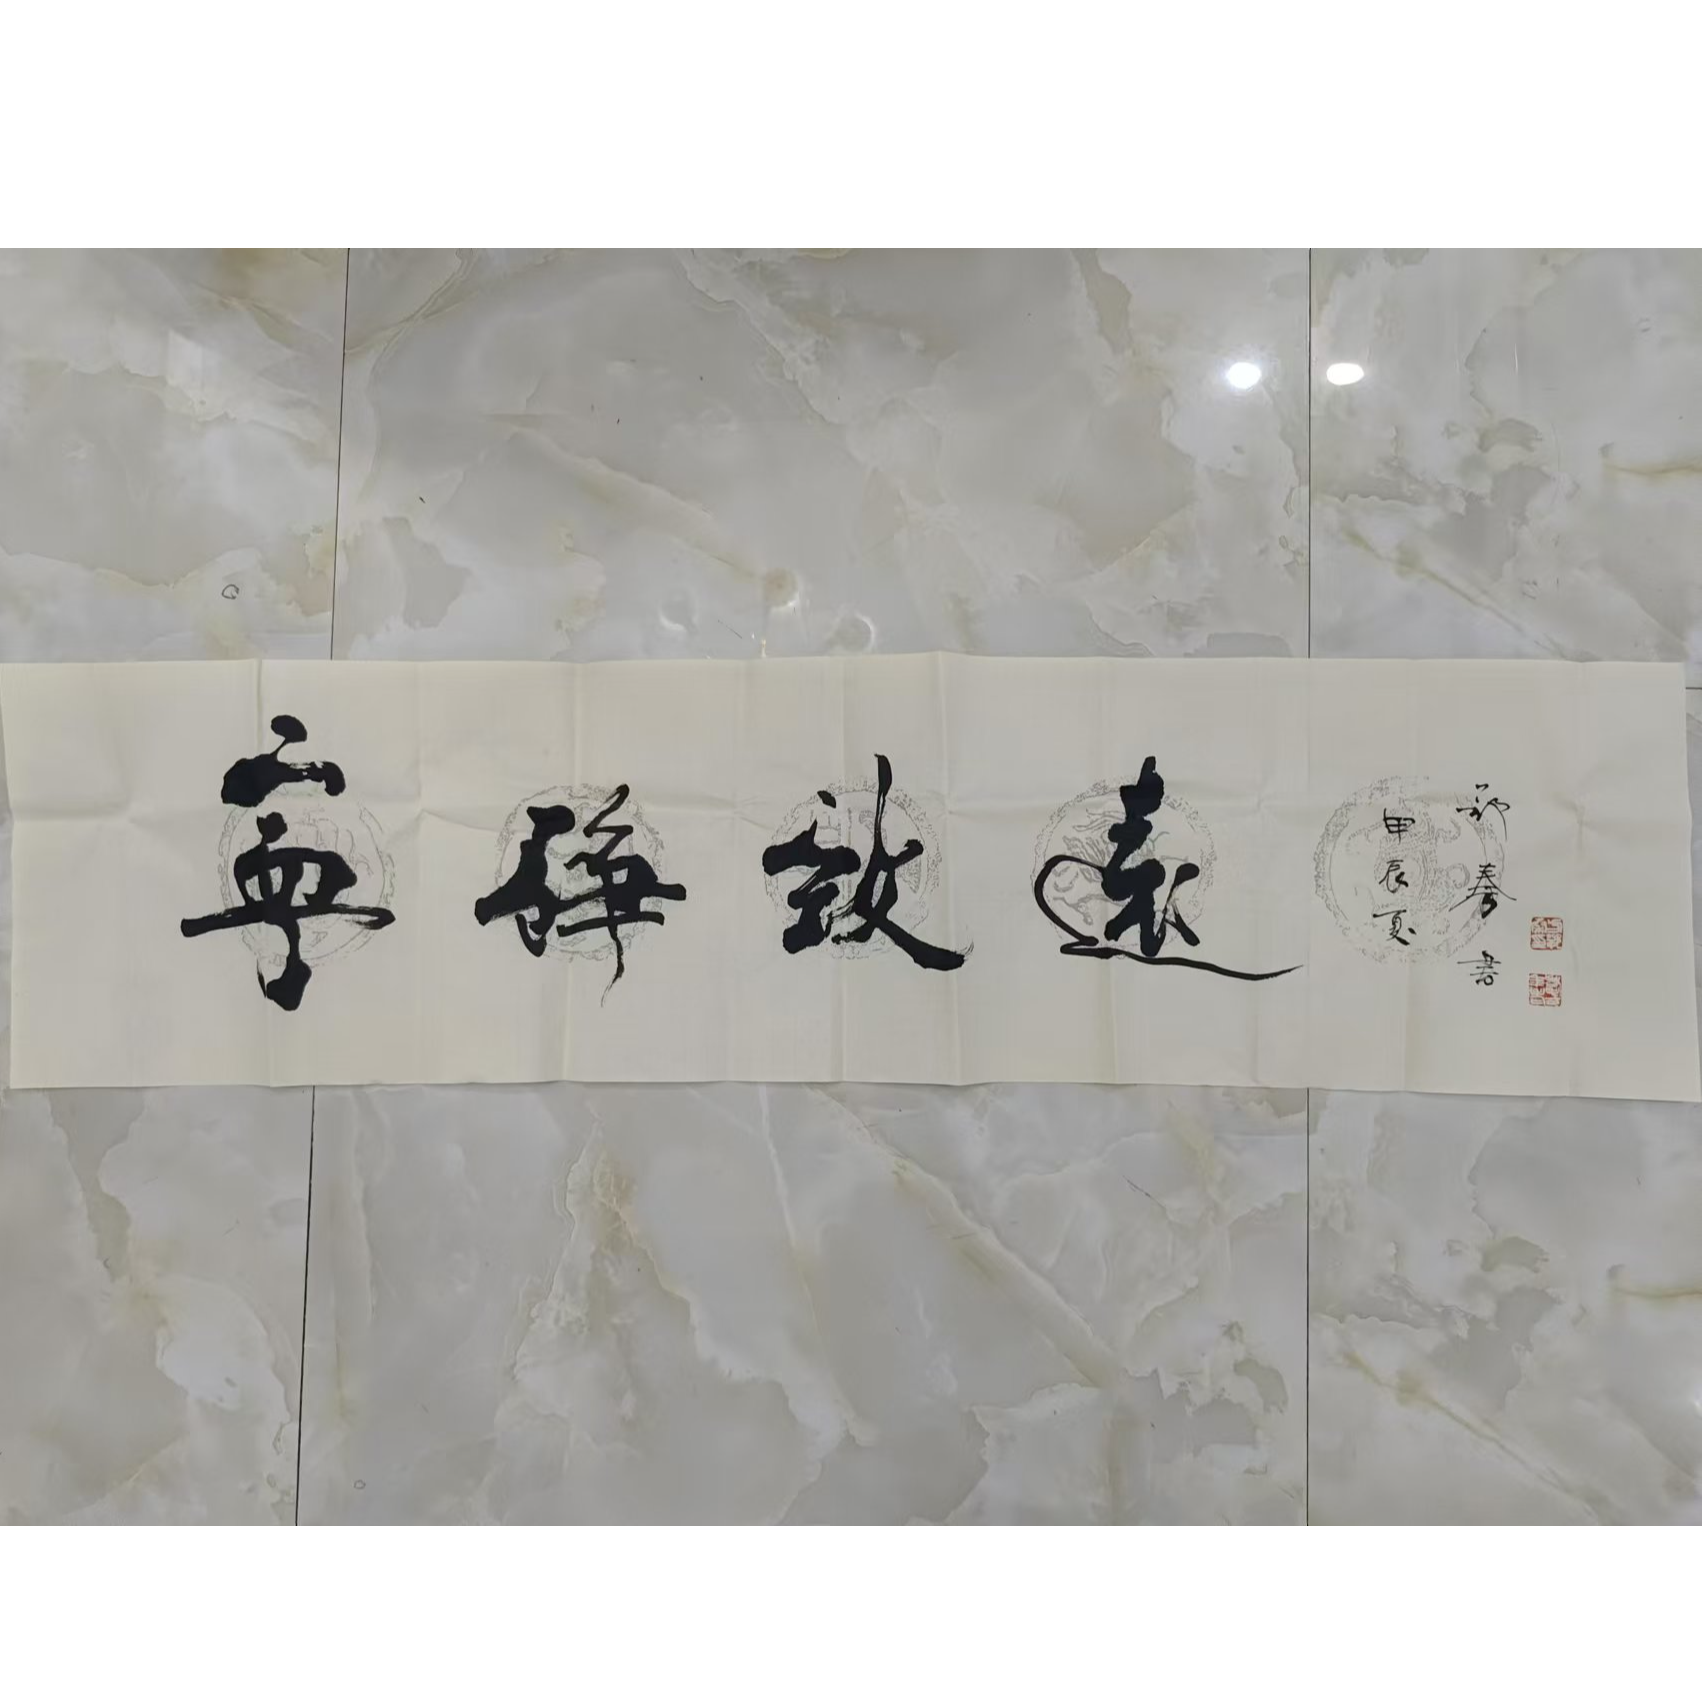 寧靜致遠
甲辰夏
春書